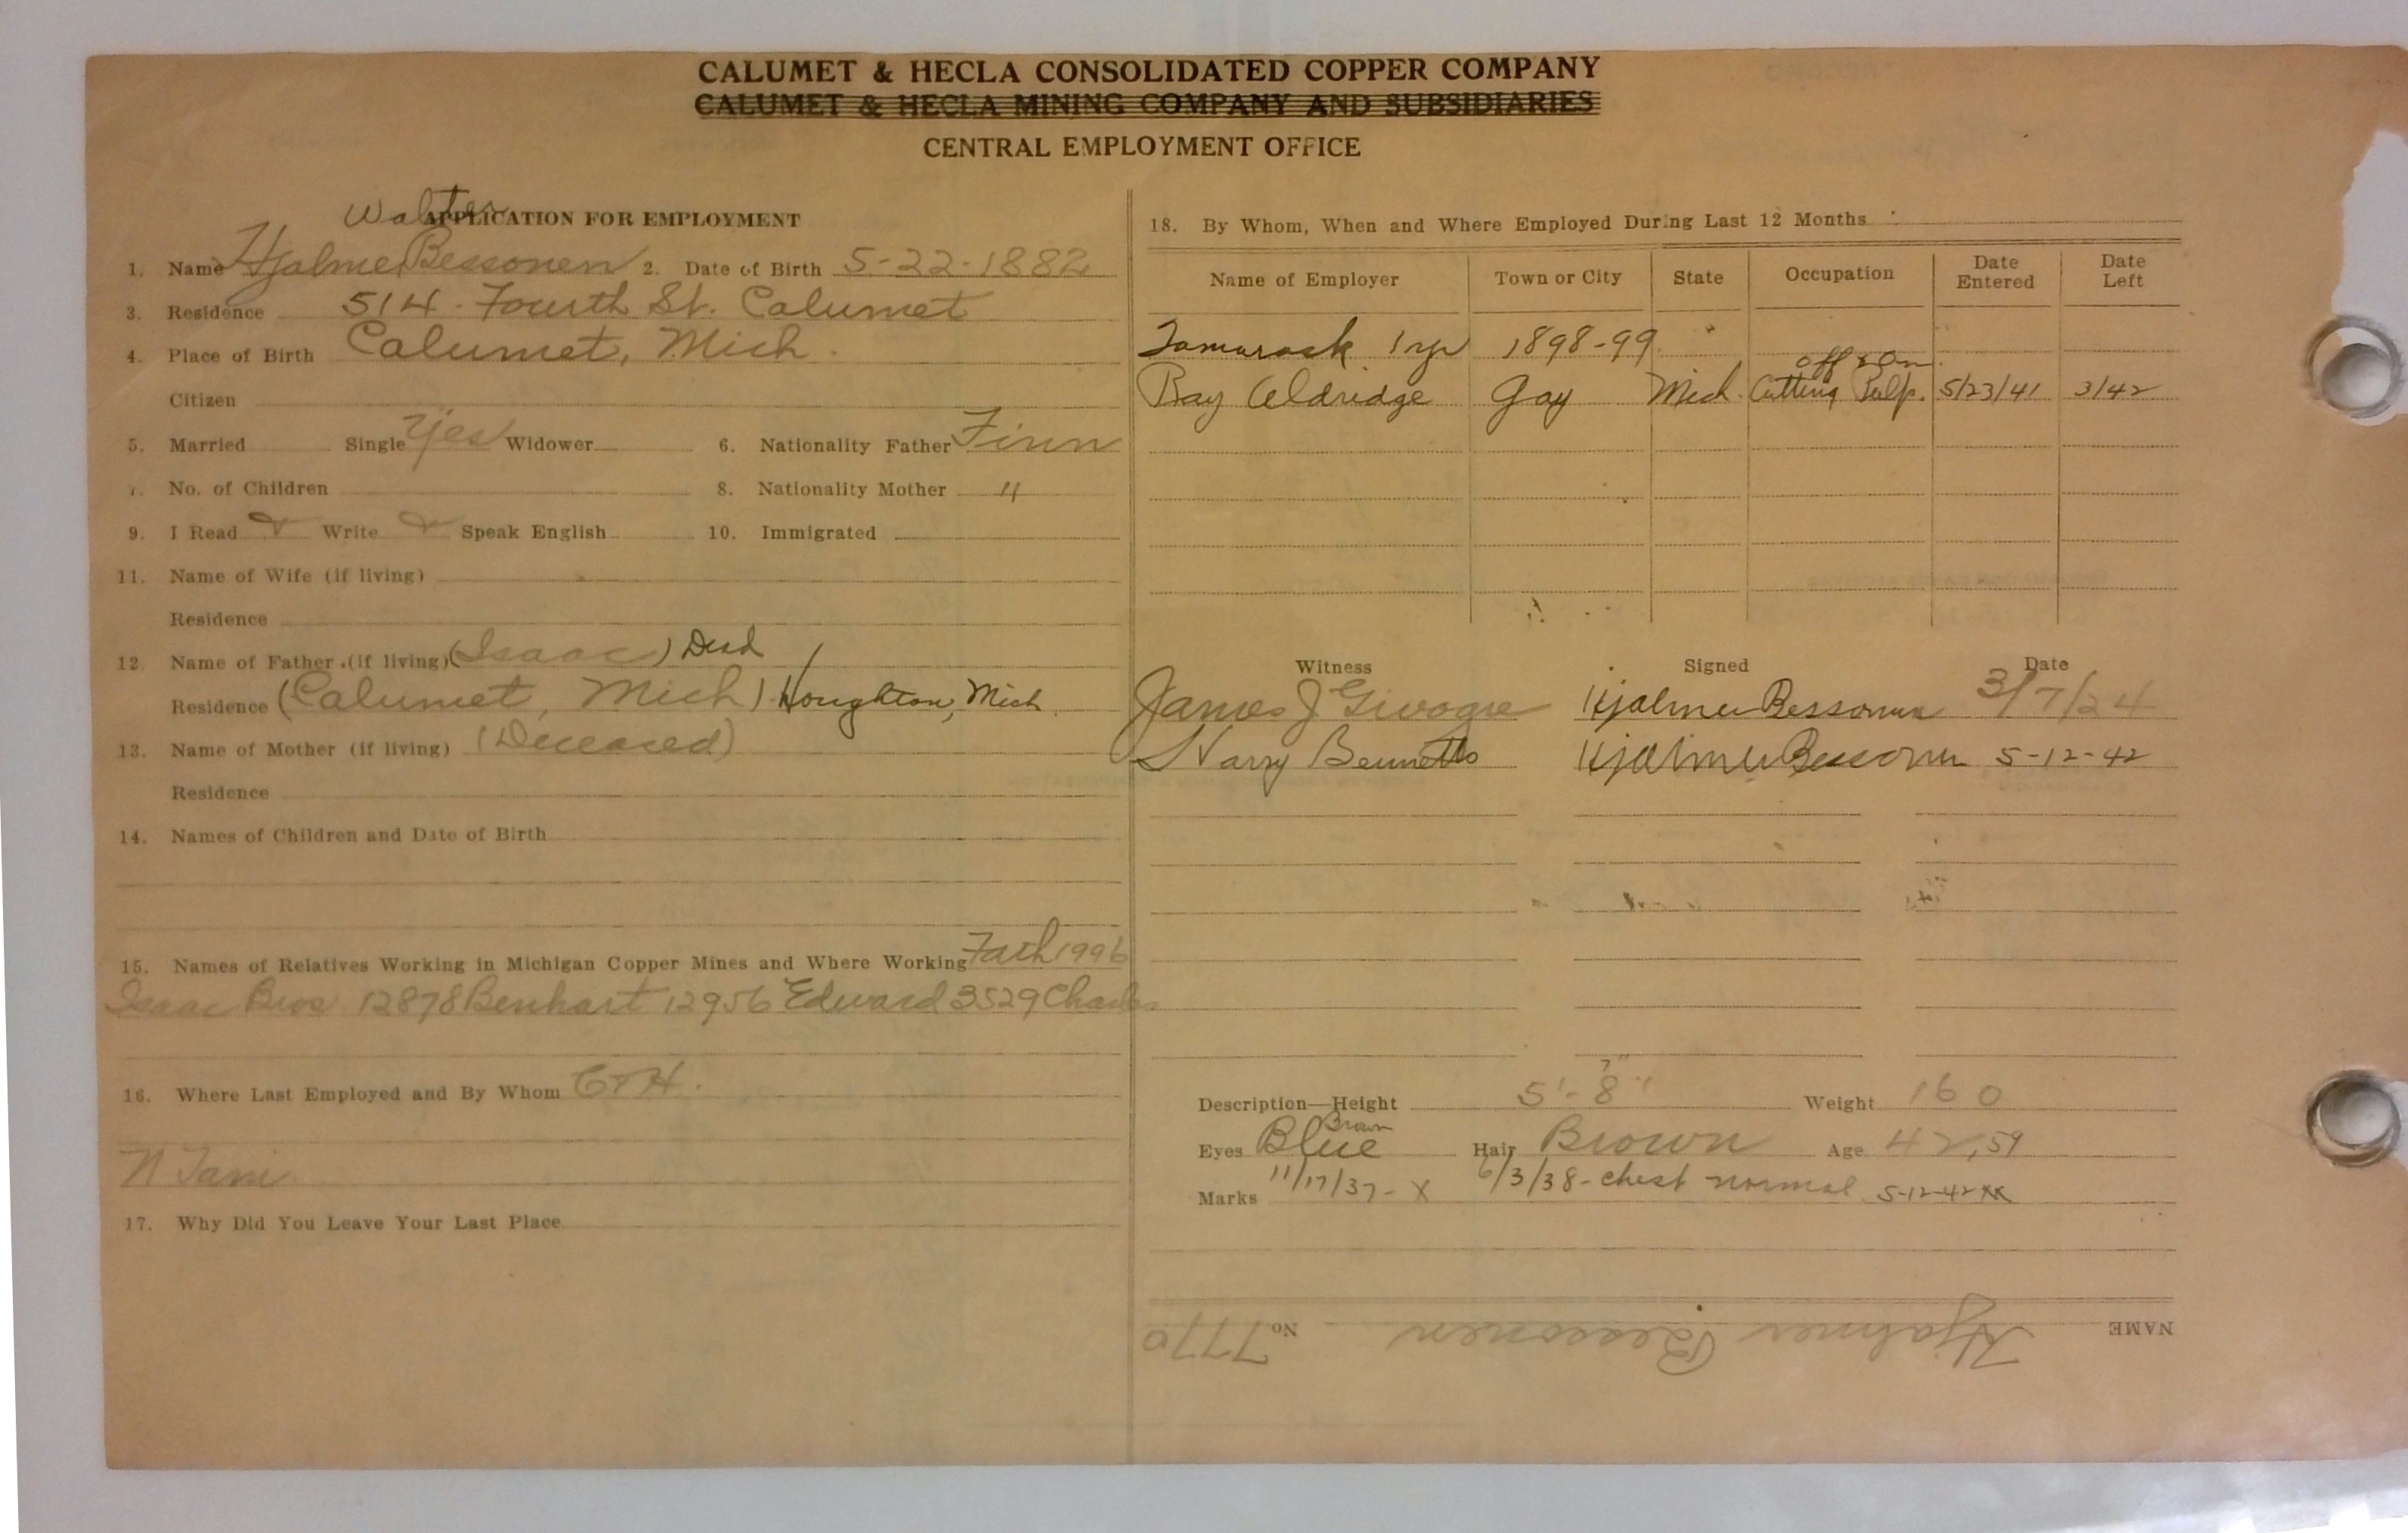 CALUMET & HECLA CONSOLIDATED COPPER COMPANY
CALUMET & HECLA MINING COMPANY AND SUBSIDIARIES
CENTRAL EMPLOYMENT OFFICE
Walter
APPLICATION FOR EMPLOYMENT
1. Name Hjalmer Bessonen 2. Date of Birth 5-22-1882
3. Residence 514 - Fourth St. Calumet
4. Place of Birth Calumet, Mich.
Citizen
5. Married Single Yes Widower 6. Nationality Father Finn
7. No. of Children 8. Nationality Mother "
9. I Read Write Speak English 10. Immigrated
11. Name of Wife (if living)
Residence
12. Name of Father (if living) (Isaac) Dead
Residence (Calumet, Mich) Houghton, Mich
13. Name of Mother (if living) (Deceased)
Residence
14. Names of Children and Date of Birth
15. Names of Relatives Working in Michigan Copper Mines and Where Working Fath 1996
Isaac Bros. 12878 Benhart 12956 Edward 3529 Charles
16. Where Last Employed and By Whom C & H.
N Tam
17. Why Did You Leave Your Last Place
18. By Whom, When and Where Employed During Last 12 Months
Name of Employer Town or City State Occupation Date Entered Date Left
Tamarack 1 yr 1898-99
off & on
Ray Aldridge Gay Mich. Cutting Pulp. 5/23/41 3/42
Witness Signed Date
James J Hjalmer Bessonen 3/7/24
Harry Bennetts Hjalmer Bessonen 5-12-42
7"
Description—Height 5'-8" Weight 160
Brown
Eyes Blue Hair Brown Age 42, 59
Marks 11/17/37- X 6/3/38- chest normal 5-12-42 XX
NAME Hjalmer Bessonen No 7770